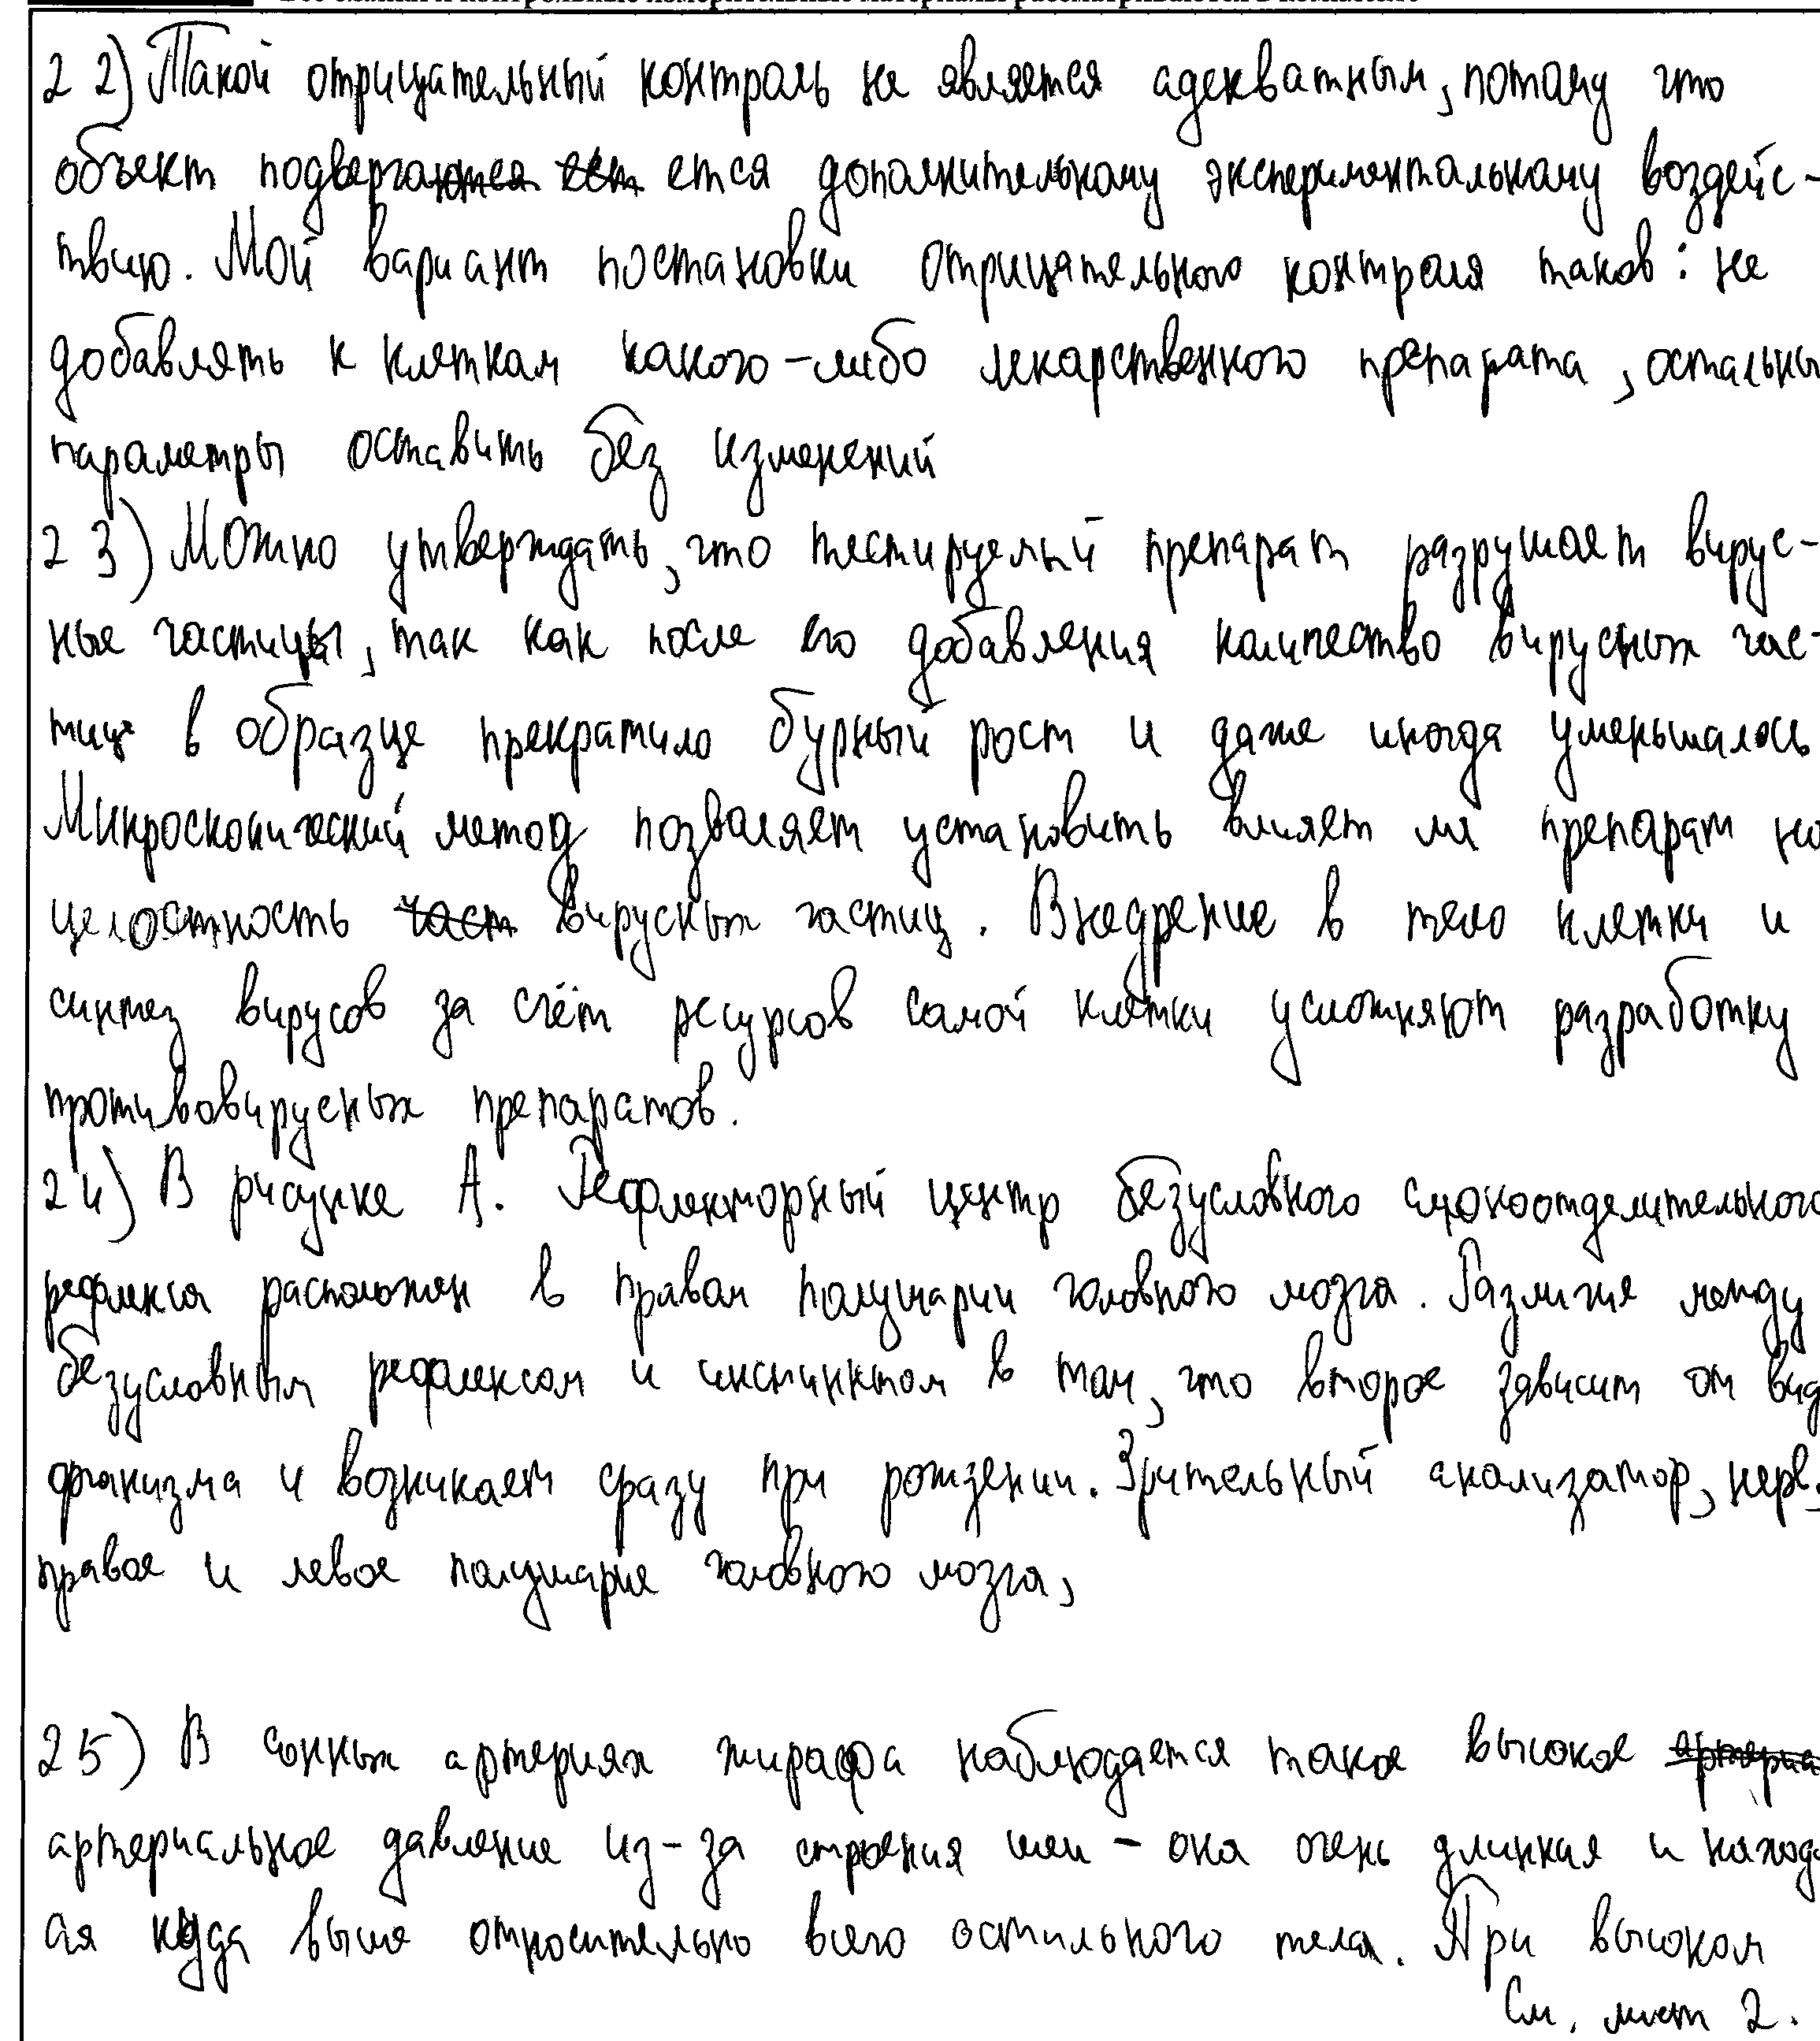 22) Такой отрицательный контроль не является адекватным, потому что
объект подвергается дополнительному экспериментальному воздейс-
твию. Мой вариант постановки отрицательного контроля таков: не
добавлять к клеткам какого-либо лекарственного препарата, остальны
параметры оставить без изменений
23) Можно утверждать, что тестируемый препарат разрушает вирус-
ные частицы, так как после его добавления количество вирусных час-
тиц в образце прекратило бурный рост и даже иногда уменьшалось
Микроскопический метод позволяет установить влияет ли препарат на
целостность вирусных частиц. Внедрение в тело клетки и
синтез вирусов за счёт ресурсов самой клетки усложняют разработку
противовирусных препаратов.
24) В рисунке А. Рефлекторный центр безусловного слюноотделительного
рефлекса расположен в правом полушарии головного мозга. Различие между
безусловным рефлексом и инстинктом в том, что второе зависит от вид
организма и возникает сразу при рождении. Зрительный анализатор, нерв,
правое и левое полушарие головного мозга,
25) В сонных артериях жирафа наблюдается такое высокое
артериальное давление из-за строения шеи – она очень длинная и наход
ся куда выше относительно всего остального тела. При высоком
См. лист 2.